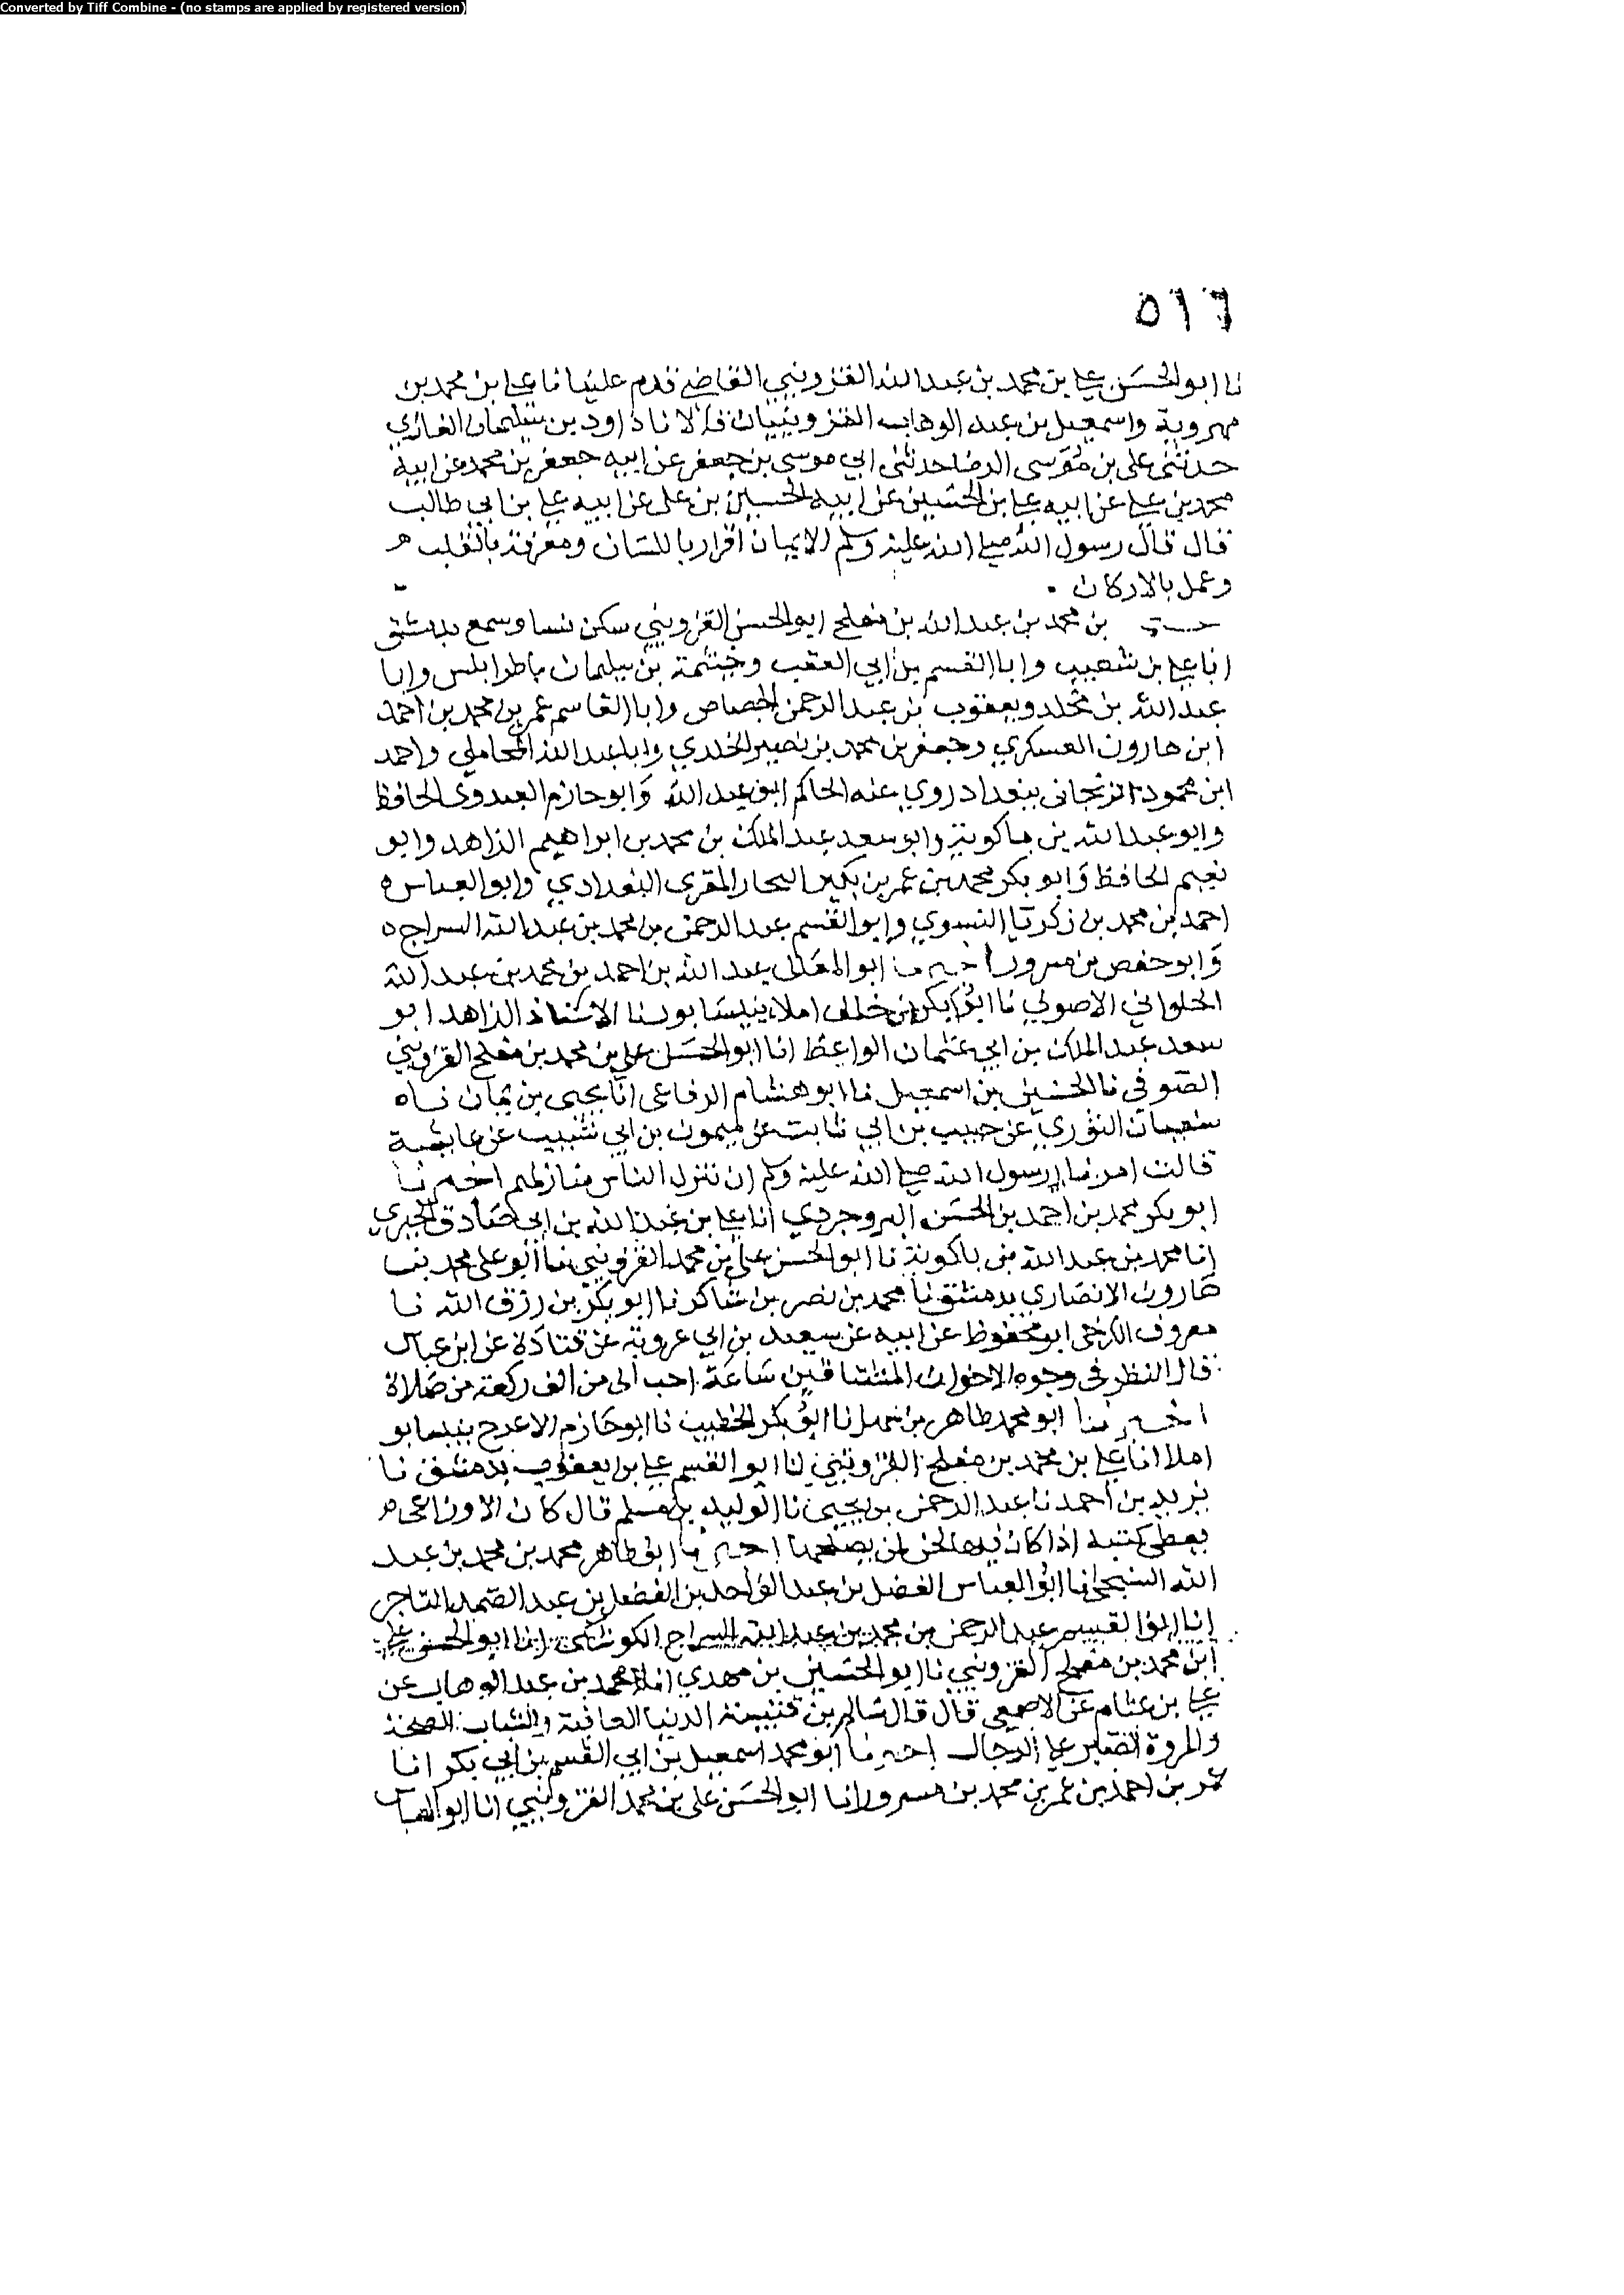 Converted by Tiff Combine - (no stamps are applied by registered version)
٥١٦
نا ابو الحسن علي بن محمد بن عبد الله القزويني القاضي قدم علينا نا علي بن محمد بن
مهروية واسمعيل بن عبد الوهاب القزوينيان قالا نا داود بن سليمان الغازي
حدثني علي بن موسى الرضا حدثني ابي موسى بن جعفر عن ابيه جعفر بن محمد عن ابيه
محمد بن علي عن ابيه علي بن الحسين عن ابيه الحسين بن علي عن ابيه علي بن ابي طالب
قال قال رسول الله صلى الله عليه وسلم الايمان اقرار باللسان ومعرفة بالقلب
وعمل بالاركان
بن محمد بن عبد الله بن مفلح ابو الحسن القزويني سكن نسا وسمع بدمشق
انا علي بن شعيب وابا القسم بن ابي العقب وخيثمة بن سليمان باطرابلس وابا
عبد الله بن مخلد ويعقوب بن عبد الرحمن الجصاص وابا القاسم عمر بن محمد بن احمد
ابن هارون العسكري وجعفر بن محمد بن نصير الخلدي وابا عبد الله المحاملي واحمد
ابن محمود الزنجاني ببغداد روي عنه الحاكم ابو عبد الله وابو حازم العبدوي الحافظ
وابو عبد الله بن باكوية وابو سعد عبد الملك بن محمد بن ابراهيم الزاهد وابو
نعيم الحافظ وابو بكر محمد بن عمر بن بكير النجار المقرى البغدادي وابو العباس
احمد بن محمد بن زكريا النسوي وابو القسم عبد الرحمن بن محمد بن عبد الله السراج
وابو حفص بن مسرور اخبرنا ابو المعالي عبد الله بن احمد بن محمد بن عبد الله
الحلواني الاصولي نا ابو بكر بن خلف املاء بنيسابور نا الاستاذ الزاهد ابو
سعد عبد الملك بن ابي عثمان الواعظ انا ابو الحسن علي بن محمد بن مفلح القزويني
الصوفي نا الحسين بن اسمعيل نا ابو هشام الرفاعي انا يحيى بن يمان نا
سفيان الثوري عن حبيب بن ابي ثابت عن ميمون بن ابي شبيب عن عايشة
قالت امرنا رسول الله صلى الله عليه وسلم ان ننزل الناس منازلهم اخبرنا
ابو بكر محمد بن احمد بن الحسن البروجردي انا علي بن عبد الله بن ابي صادق الحيري
انا محمد بن عبد الله بن باكوية نا ابو الحسن علي بن محمد القزويني نا ابو علي محمد بن
هارون الانصاري بدمشق نا محمد بن نصر بن شاكر نا ابو بكر بن رزق الله نا
معروف الكرخي ابو محفوظ عن ابيه عن سعيد بن ابي عروبة عن قتادة عن ابن عباس
قال النظر في وجوه الاخوان المشتاقين ساعة احب الى من الف ركعة من صلاة
اخبرنا ابو محمد طاهر بن سهل نا ابو بكر الخطيب نا ابو حازم الاعرج بنيسابو
املا انا علي بن محمد بن مفلح القزويني نا ابو القسم علي بن يعقوب بدمشق نا
يزيد بن احمد نا عبد الرحمن بن يحيى نا الوليد بن مسلم قال كان الاوزاعي
يعطي كتبه اذا كان فيها لحن لمن يصلحها اخبرنا ابو طاهر محمد بن محمد بن عبد
الله السنجي انا ابو العباس الفضل بن عبد الواحد بن الفضل بن عبد الصمد التاجر
انا ابو القسم عبد الرحمن بن محمد بن عبد الله السراج انا ابو الحسن علي
ابن محمد بن مفلح القزويني نا ابو الحسين بن مهدي محمد بن عبد الوهاب عن
علي بن عثام عن الاصمعي قال قال سالم بن قتيبة الدنيا العافية والشباب الصحة
والمروة الصبر على الرجال اخبرنا ابو محمد اسمعيل بن ابي القسم بن ابي بكر انا
عمر بن احمد بن عمر بن محمد بن مسرور انا ابو الحسن علي بن محمد القزويني انا ابو العباس